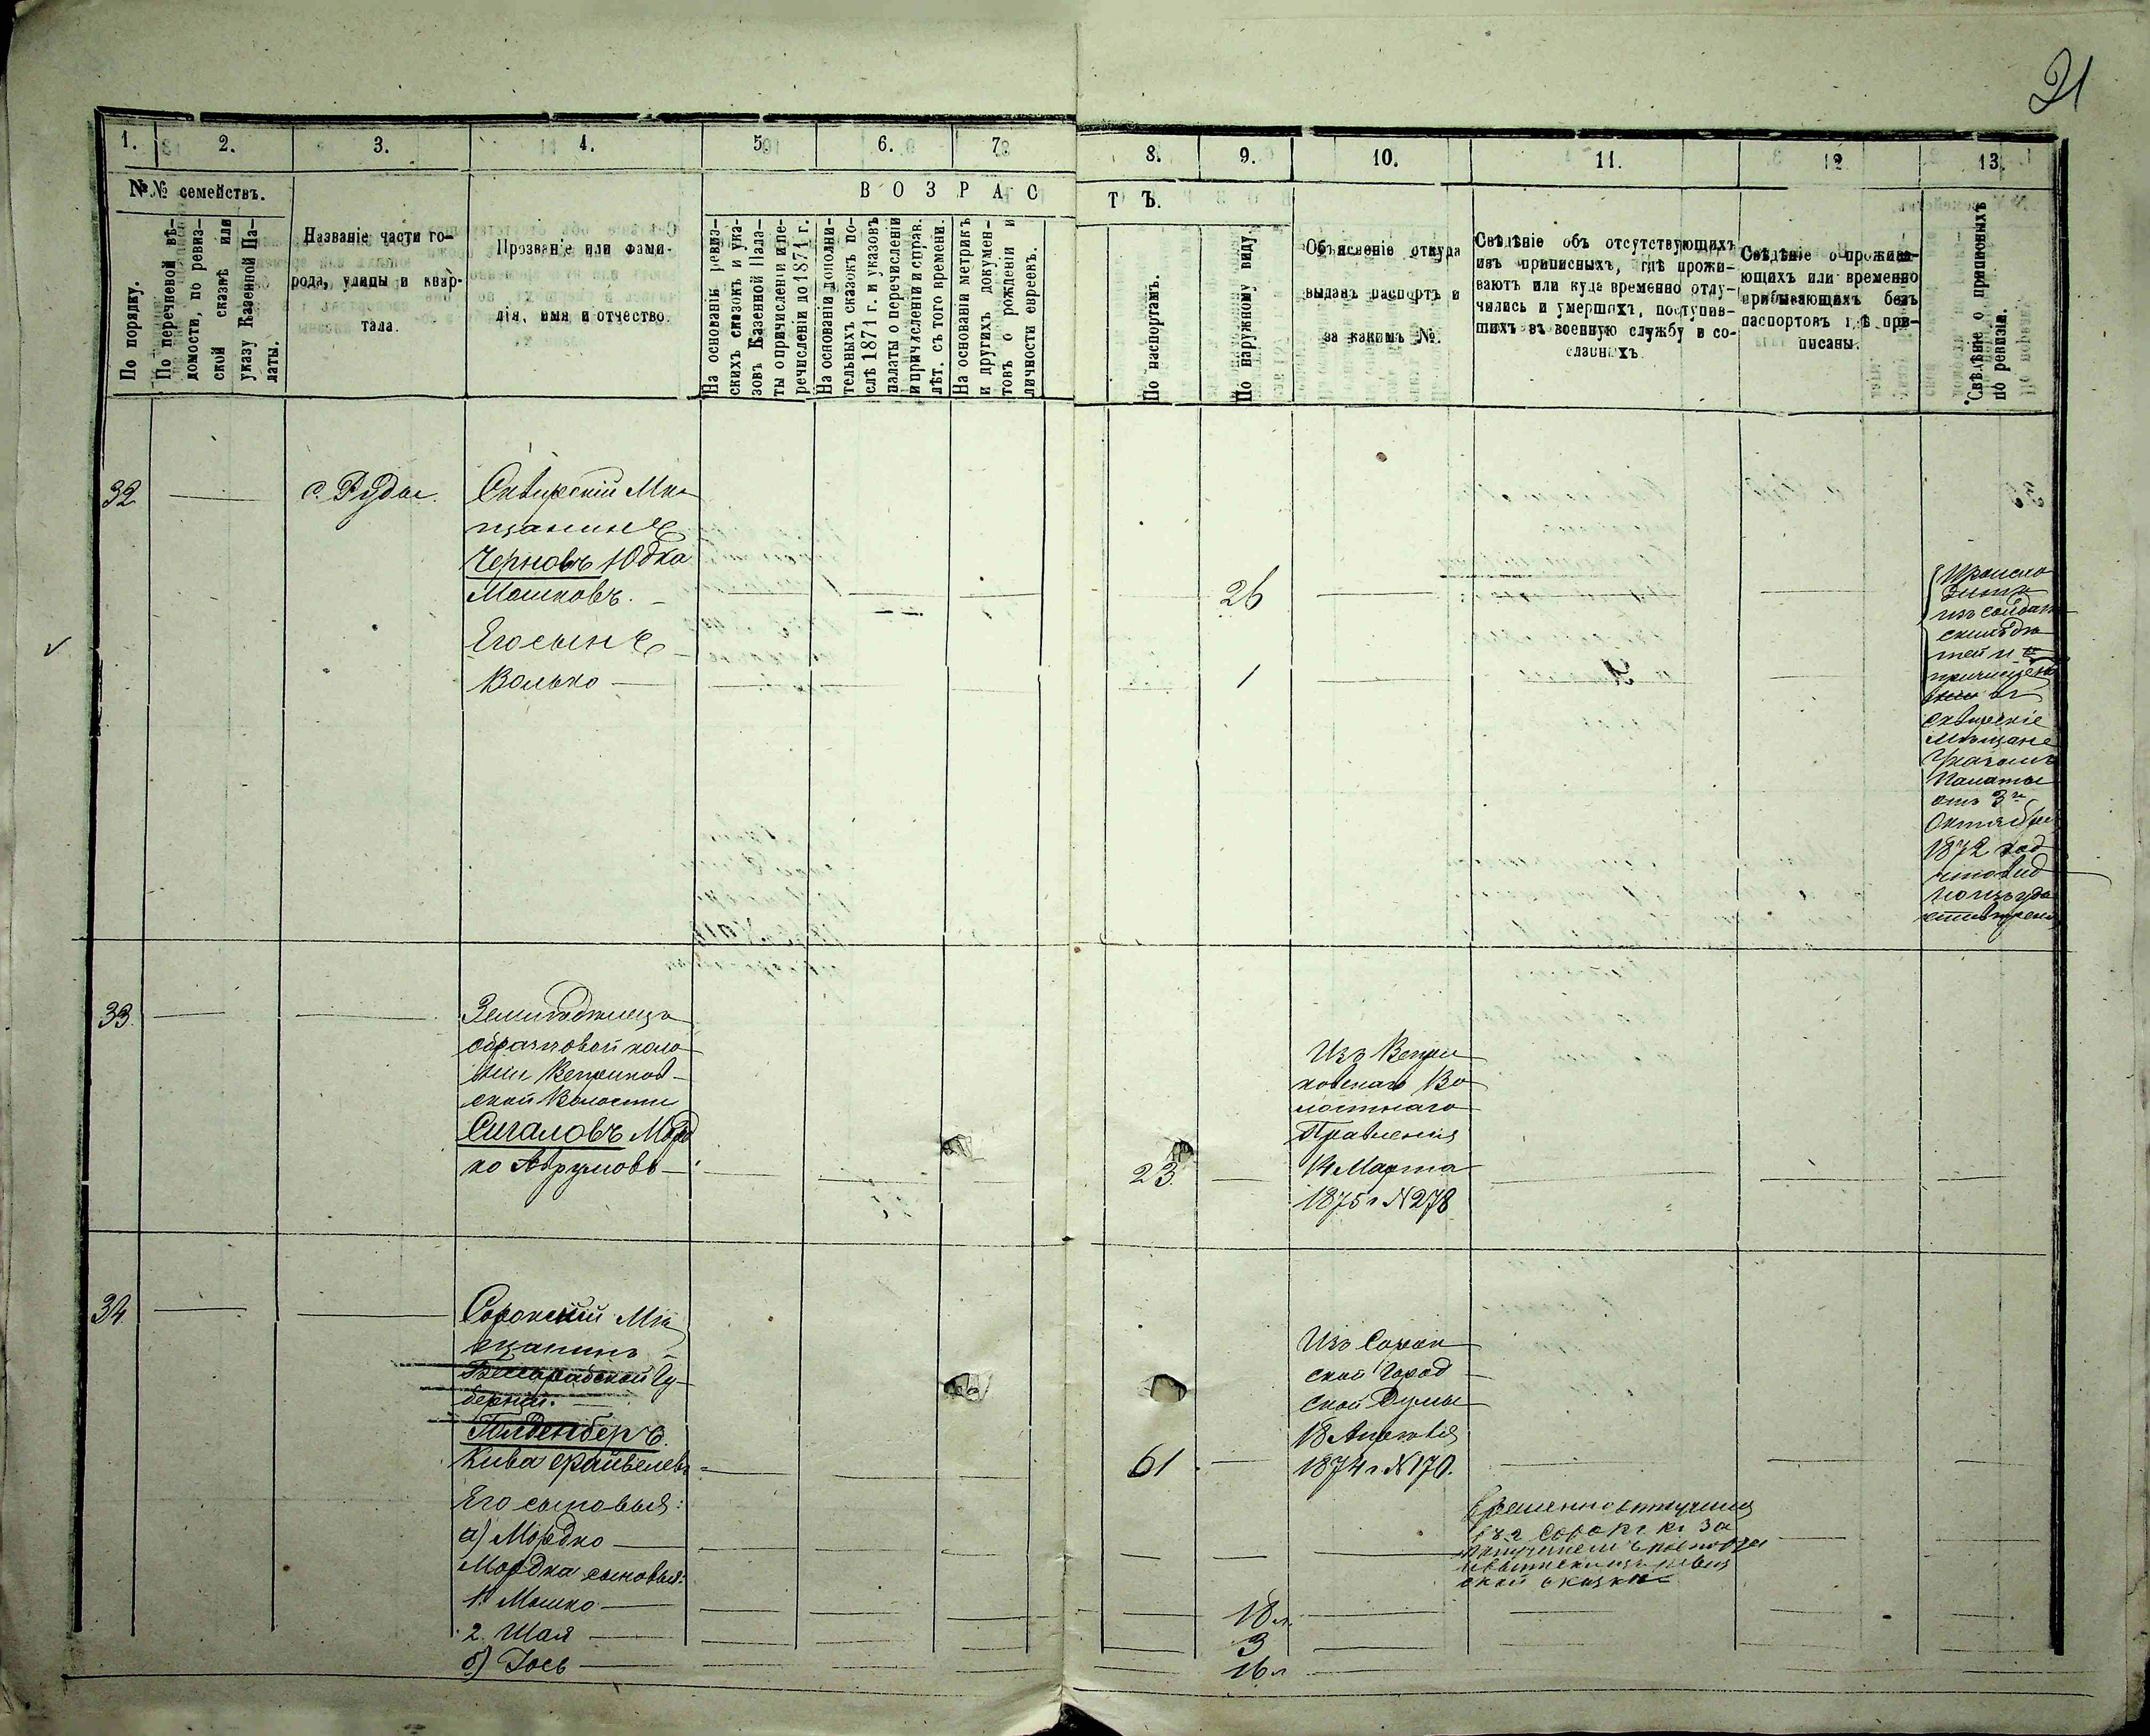 21
1. 2. 3. 4. 5. 6. 7. 8. 9. 10. 11. 12 13.
№№ семействъ.
По порядку.
По перечневой вѣ-
домости, по ревиз-
ской сказкѣ или
указу Казенной Па-
латы.
Названіе части го-
рода, улицы и квар-
тала.
Прозваніе или фами-
лія, имя и отчество.
ВОЗРАСТЪ.
На основаніи ревиз-
скихъ сказокъ и ука-
зовъ Казенной Пала-
ты о причисленіи и пе-
речисленіи до 1874 г.
На основаніи дополни-
тельныхъ сказокъ по-
слѣ 1874 г. и указовъ
палаты о перечисленіи
и причисленіи и справ.
лѣт. съ того времени.
На основаніи метрикъ
и другихъ докумен-
товъ о рожденіи и
личности евреевъ.
По паспортамъ.
По наружному виду.
Объясненіе откуда
выданъ паспортъ и
за какимъ №.
Свѣдѣніе объ отсутствующихъ
изъ приписныхъ, гдѣ прожи-
ваютъ или куда временно отлу-
чились и умершихъ, поступив-
шихъ въ военную службу и со-
сланныхъ.
Свѣдѣніе о прожива-
ющихъ или временно
прибывающихъ безъ
паспортовъ гдѣ при-
писаны.
Свѣдѣніе о приписныхъ
по ревизіи.
32
с. Рудые.
Сквирскій Мѣ
щанинъ
Черновъ Юдка
Мошковъ.
26
Его сынъ
Волько
1
Происхо
дитъ
изъ солдат
скихъ дѣ
тей и
причислен
въ
сквирскіе
мѣщане
Указомъ
Палаты
отъ 3го
Октября
1872 год
33.
Земледѣлецъ
образцовой коло
ніи Веприков
ской Волости
Сигаловъ Морд
ко Аврумовъ
23.
Изъ Вепри
ковскаго Во
лостнаго
Правленія
14 Марта
1875 г №278
34
Сорокскій Мѣ
щанинъ
Бессарабской Гу
берніи.
Гилденберъ
Кива Срайвелевъ
61
Изъ Сорок
ской Город
ской Думы
18 Апрѣля
1874 г №170.
Его сыновья:
а) Мордко
Временно отлучился
въ г. Сороки за
полученіемъ паспорта
и выписки изъ ревиз
ской сказки
Мордка сыновья:
1. Мошко
18 л.
2. Шая
3
б) Іось
16 л